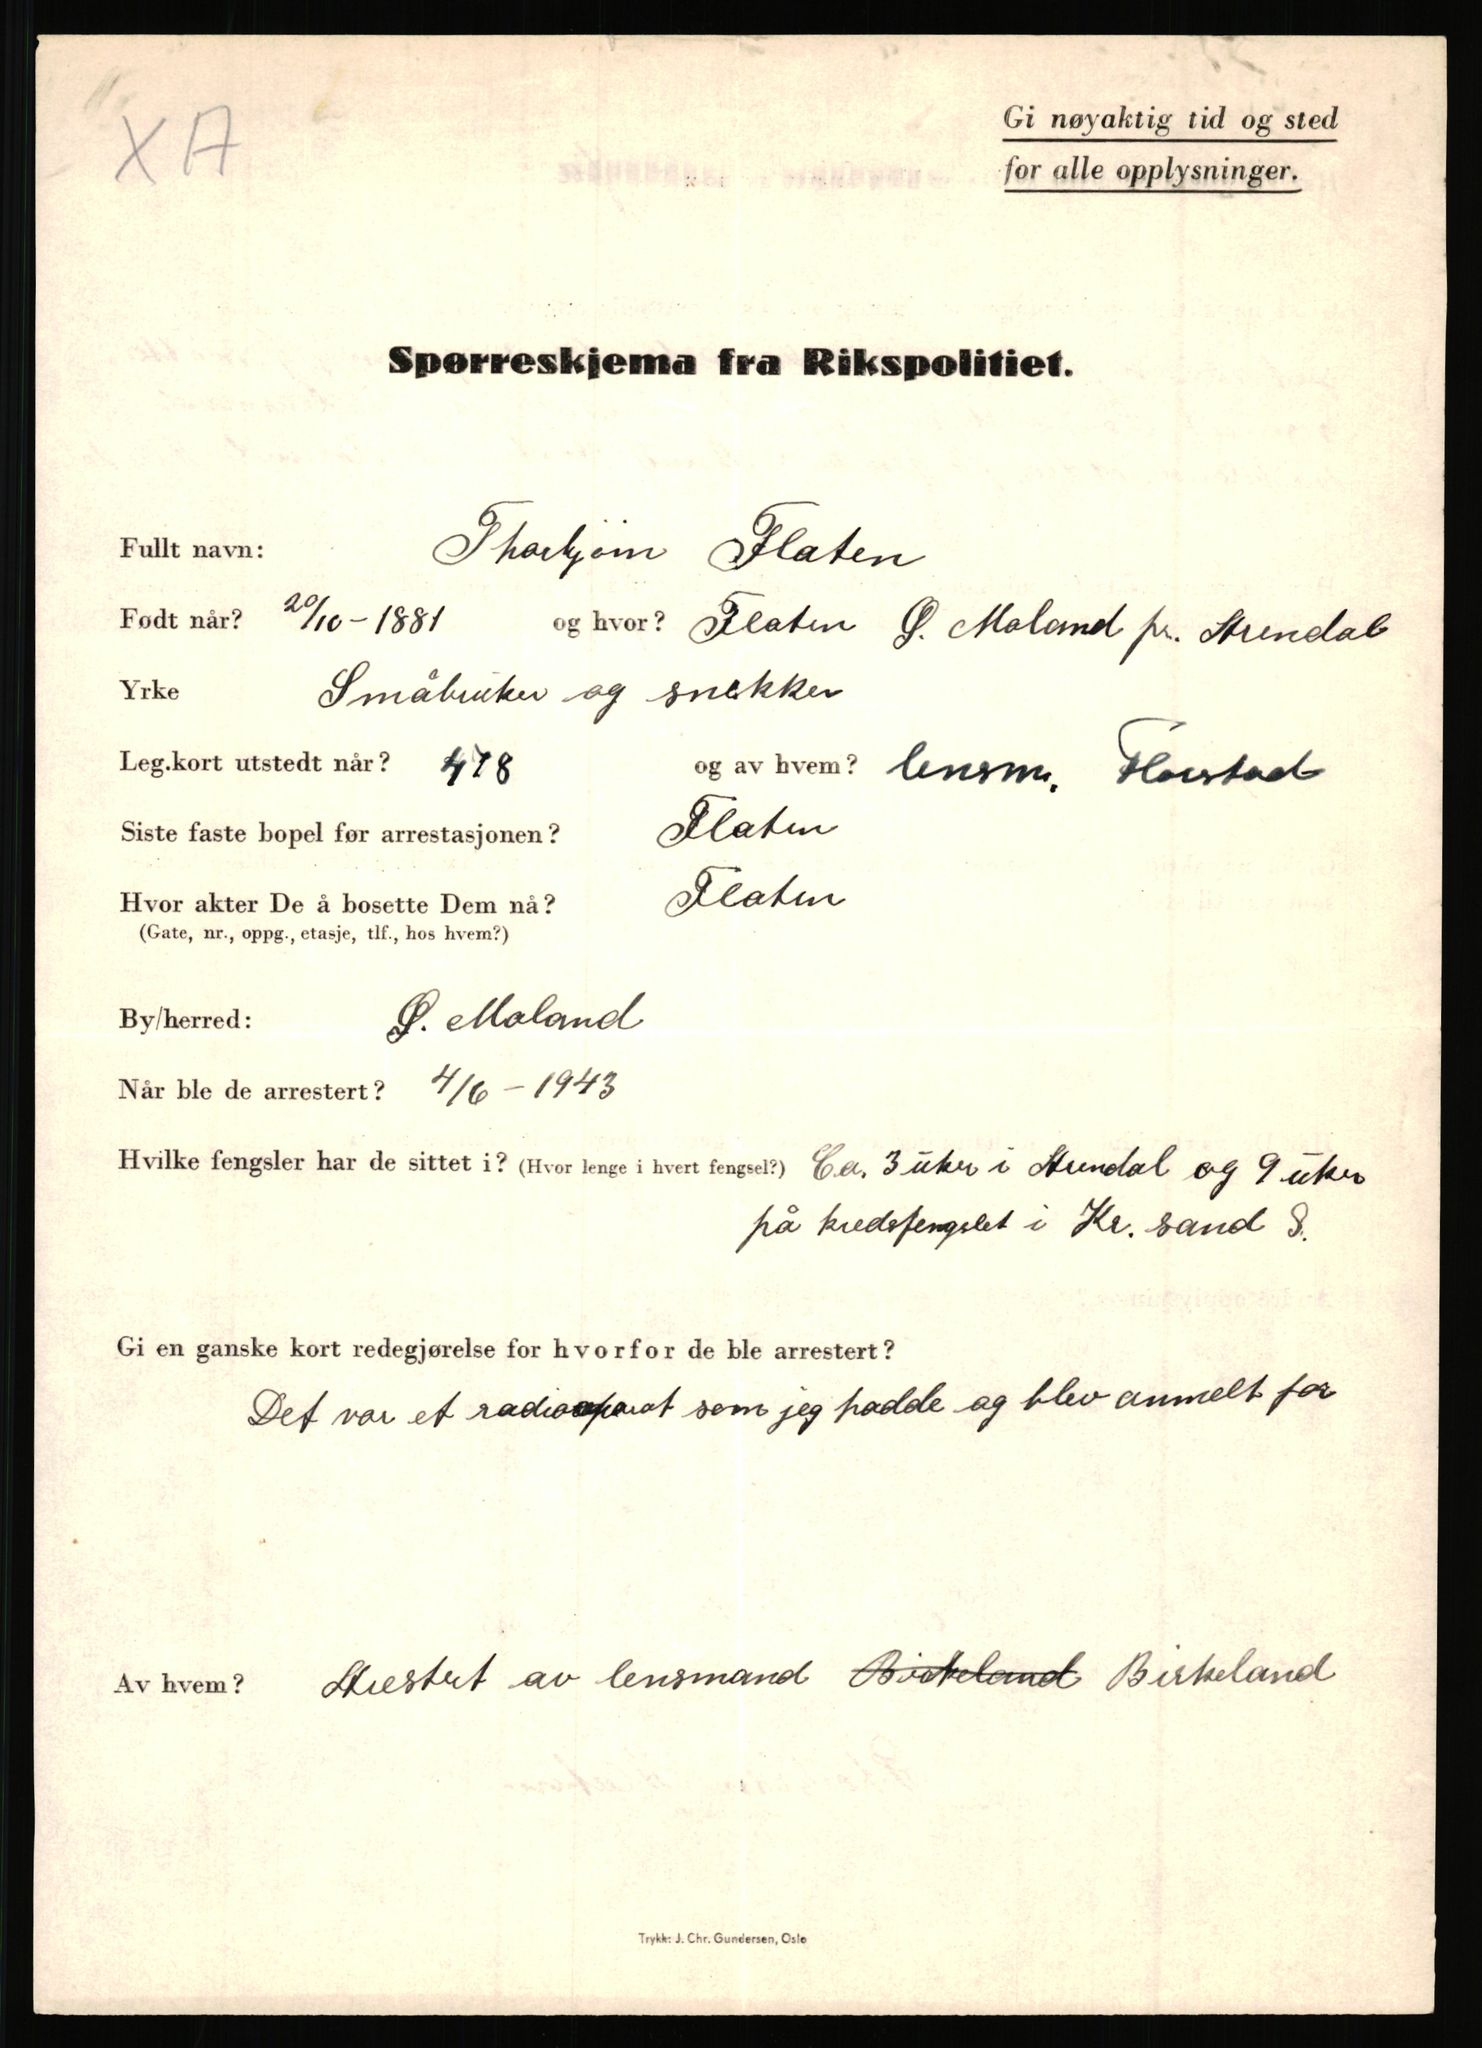 XA
Gi nøyaktig tid og sted
for alle opplysninger.
Spørreskjema fra Rikspolitiet.
Fullt navn: Thorbjörn Flaten
Født når? 20/10 - 1881 og hvor? Flaten Ø. Moland pr. Arendal
Yrke Småbruker og snekker
Leg.kort utstedt når? 478 og av hvem? lensm.
Siste faste bopel før arrestasjonen? Flaten
Hvor akter De å bosette Dem nå? Flaten
(Gate, nr., oppg., etasje, tlf., hos hvem?)
By/herred: Ø. Moland
Når ble de arrestert? 4/6 - 1943
Hvilke fengsler har de sittet i? (Hvor lenge i hvert fengsel?) Ca. 3 uker i Arendal og 9 uker
på kredsfengslet i Kr. sand S.
Gi en ganske kort redegjørelse for hvorfor de ble arrestert?
Det var et radioaparat som jeg hadde og blev anmelt for
Av hvem? Arestert av lensmand Birkeland Birkeland
Trykk: J. Chr. Gundersen, Oslo